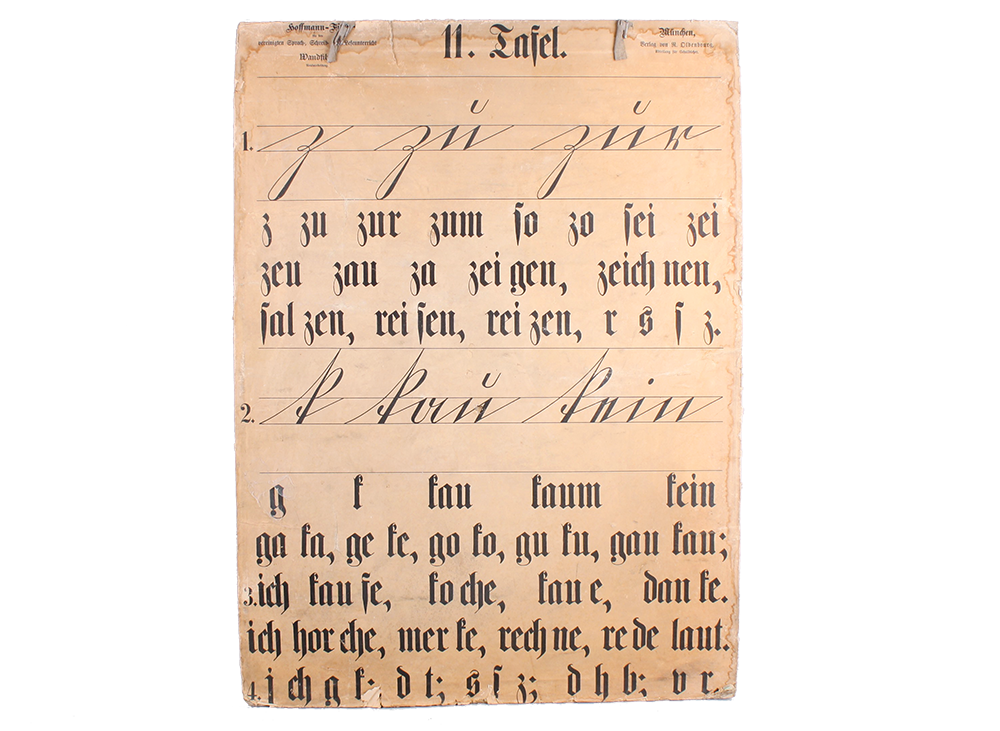 Hoffmann-
11. Tafel.
München,
vereinigten Sprach-, Schreib- Leseunterricht
Verlag von R. Oldenbourg,
1. z zu zur
z zu zur zum ſo zo ſei zei
zeu zau za zei gen, zeich nen,
ſal zen, rei ſen, rei zen, r s ſ z.
2. k kau kein
g k kau kaum kein
ga ka, ge ke, go ko, gu ku, gau kau;
3. ich kau fe, ko che, kau e, dan ke.
ich hor che, mer ke, rech ne, re de laut.
4. j ch g k; d t; s ſ z; d h b; v r.